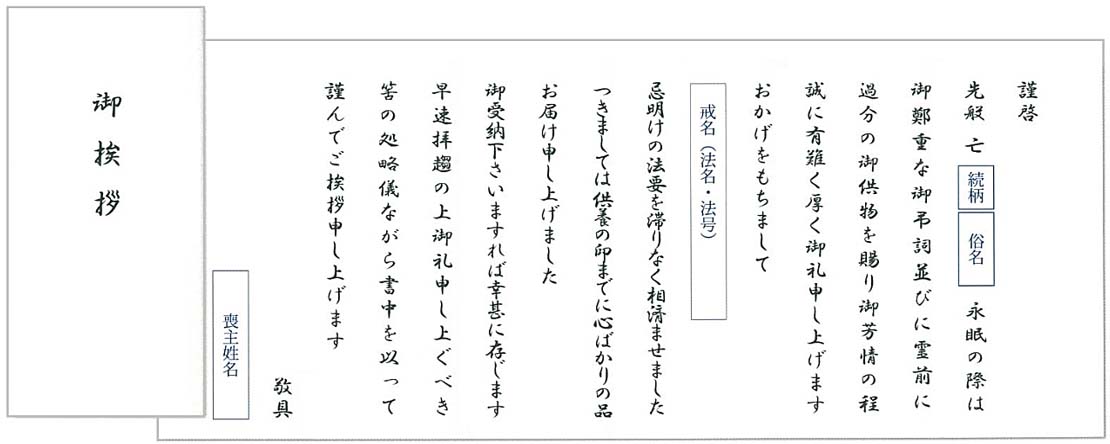 御挨拶
謹啓
先般 亡 続柄 俗名 永眠の際は
御鄭重な御弔詞並びに霊前に
過分の御供物を賜り御芳情の程
誠に有難く厚く御礼申し上げます
おかげをもちまして
戒名(法名・法号)
忌明けの法要を滞りなく相済ませました
つきましては供養の印までに心ばかりの品
お届け申し上げました
御受納下さいますれば幸甚に存じます
早速拝趨の上御礼申し上ぐべき
筈の処略儀ながら書中を以って
謹んでご挨拶申し上げます
敬具
喪主姓名